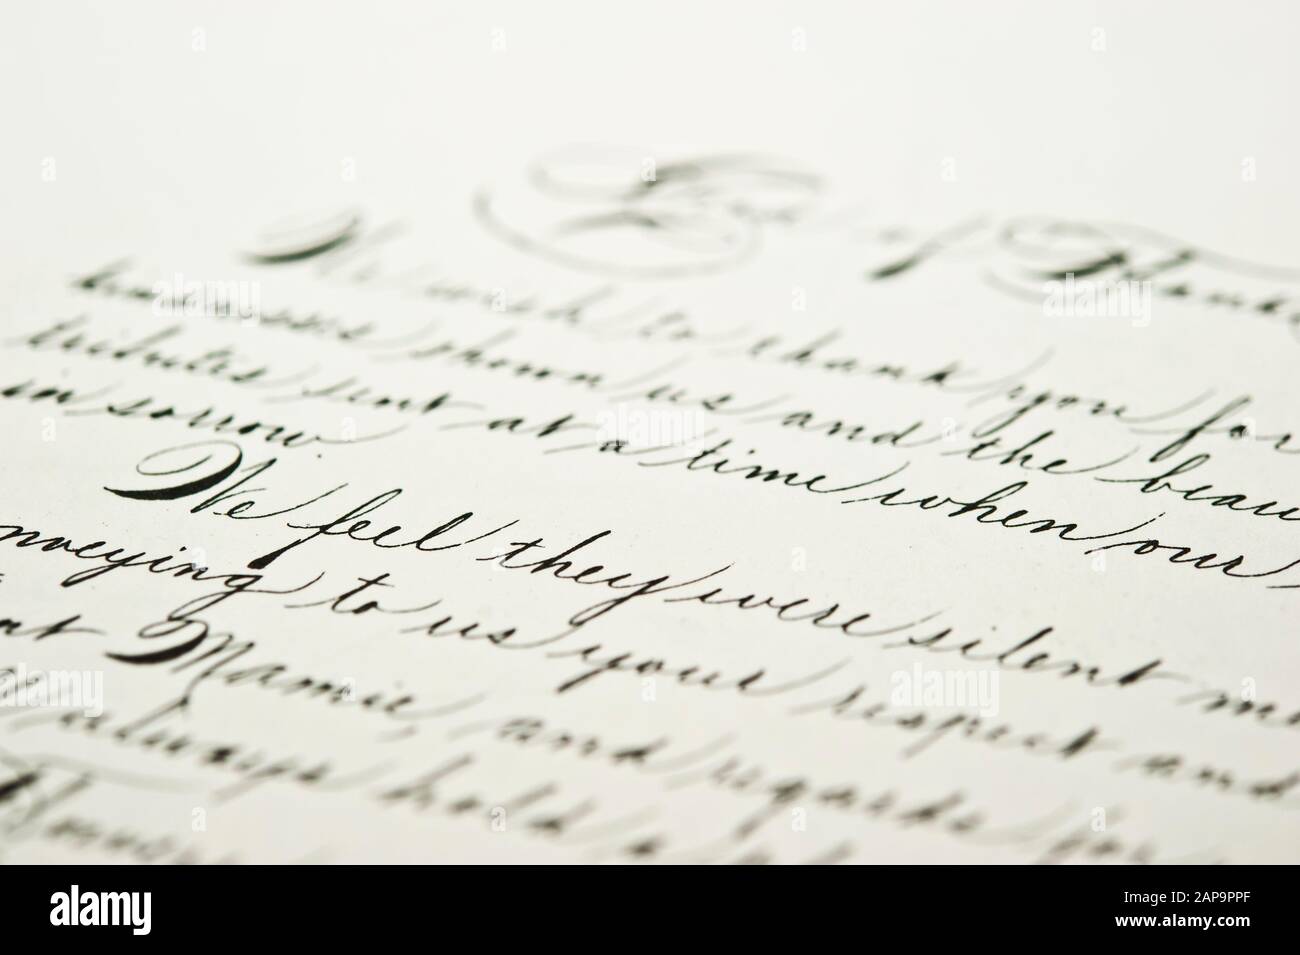 Card of Thanks
We wish to thank you for
kindnesses shown us and the beau
tributes sent at a time when our
in sorrow
We feel they were silent me
nveying to us your respect and
at Mamie, and regards for
always hold
alamy
Image ID: 2AP9PPF
www.alamy.com